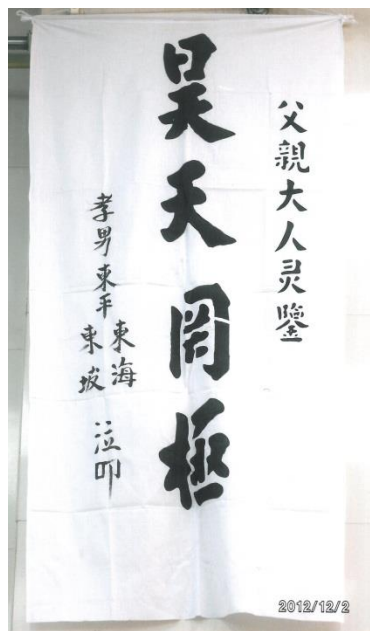 父親大人灵鑒
昊天罔極
孝男東平
東海
東坡
泣叩
2012/12/2